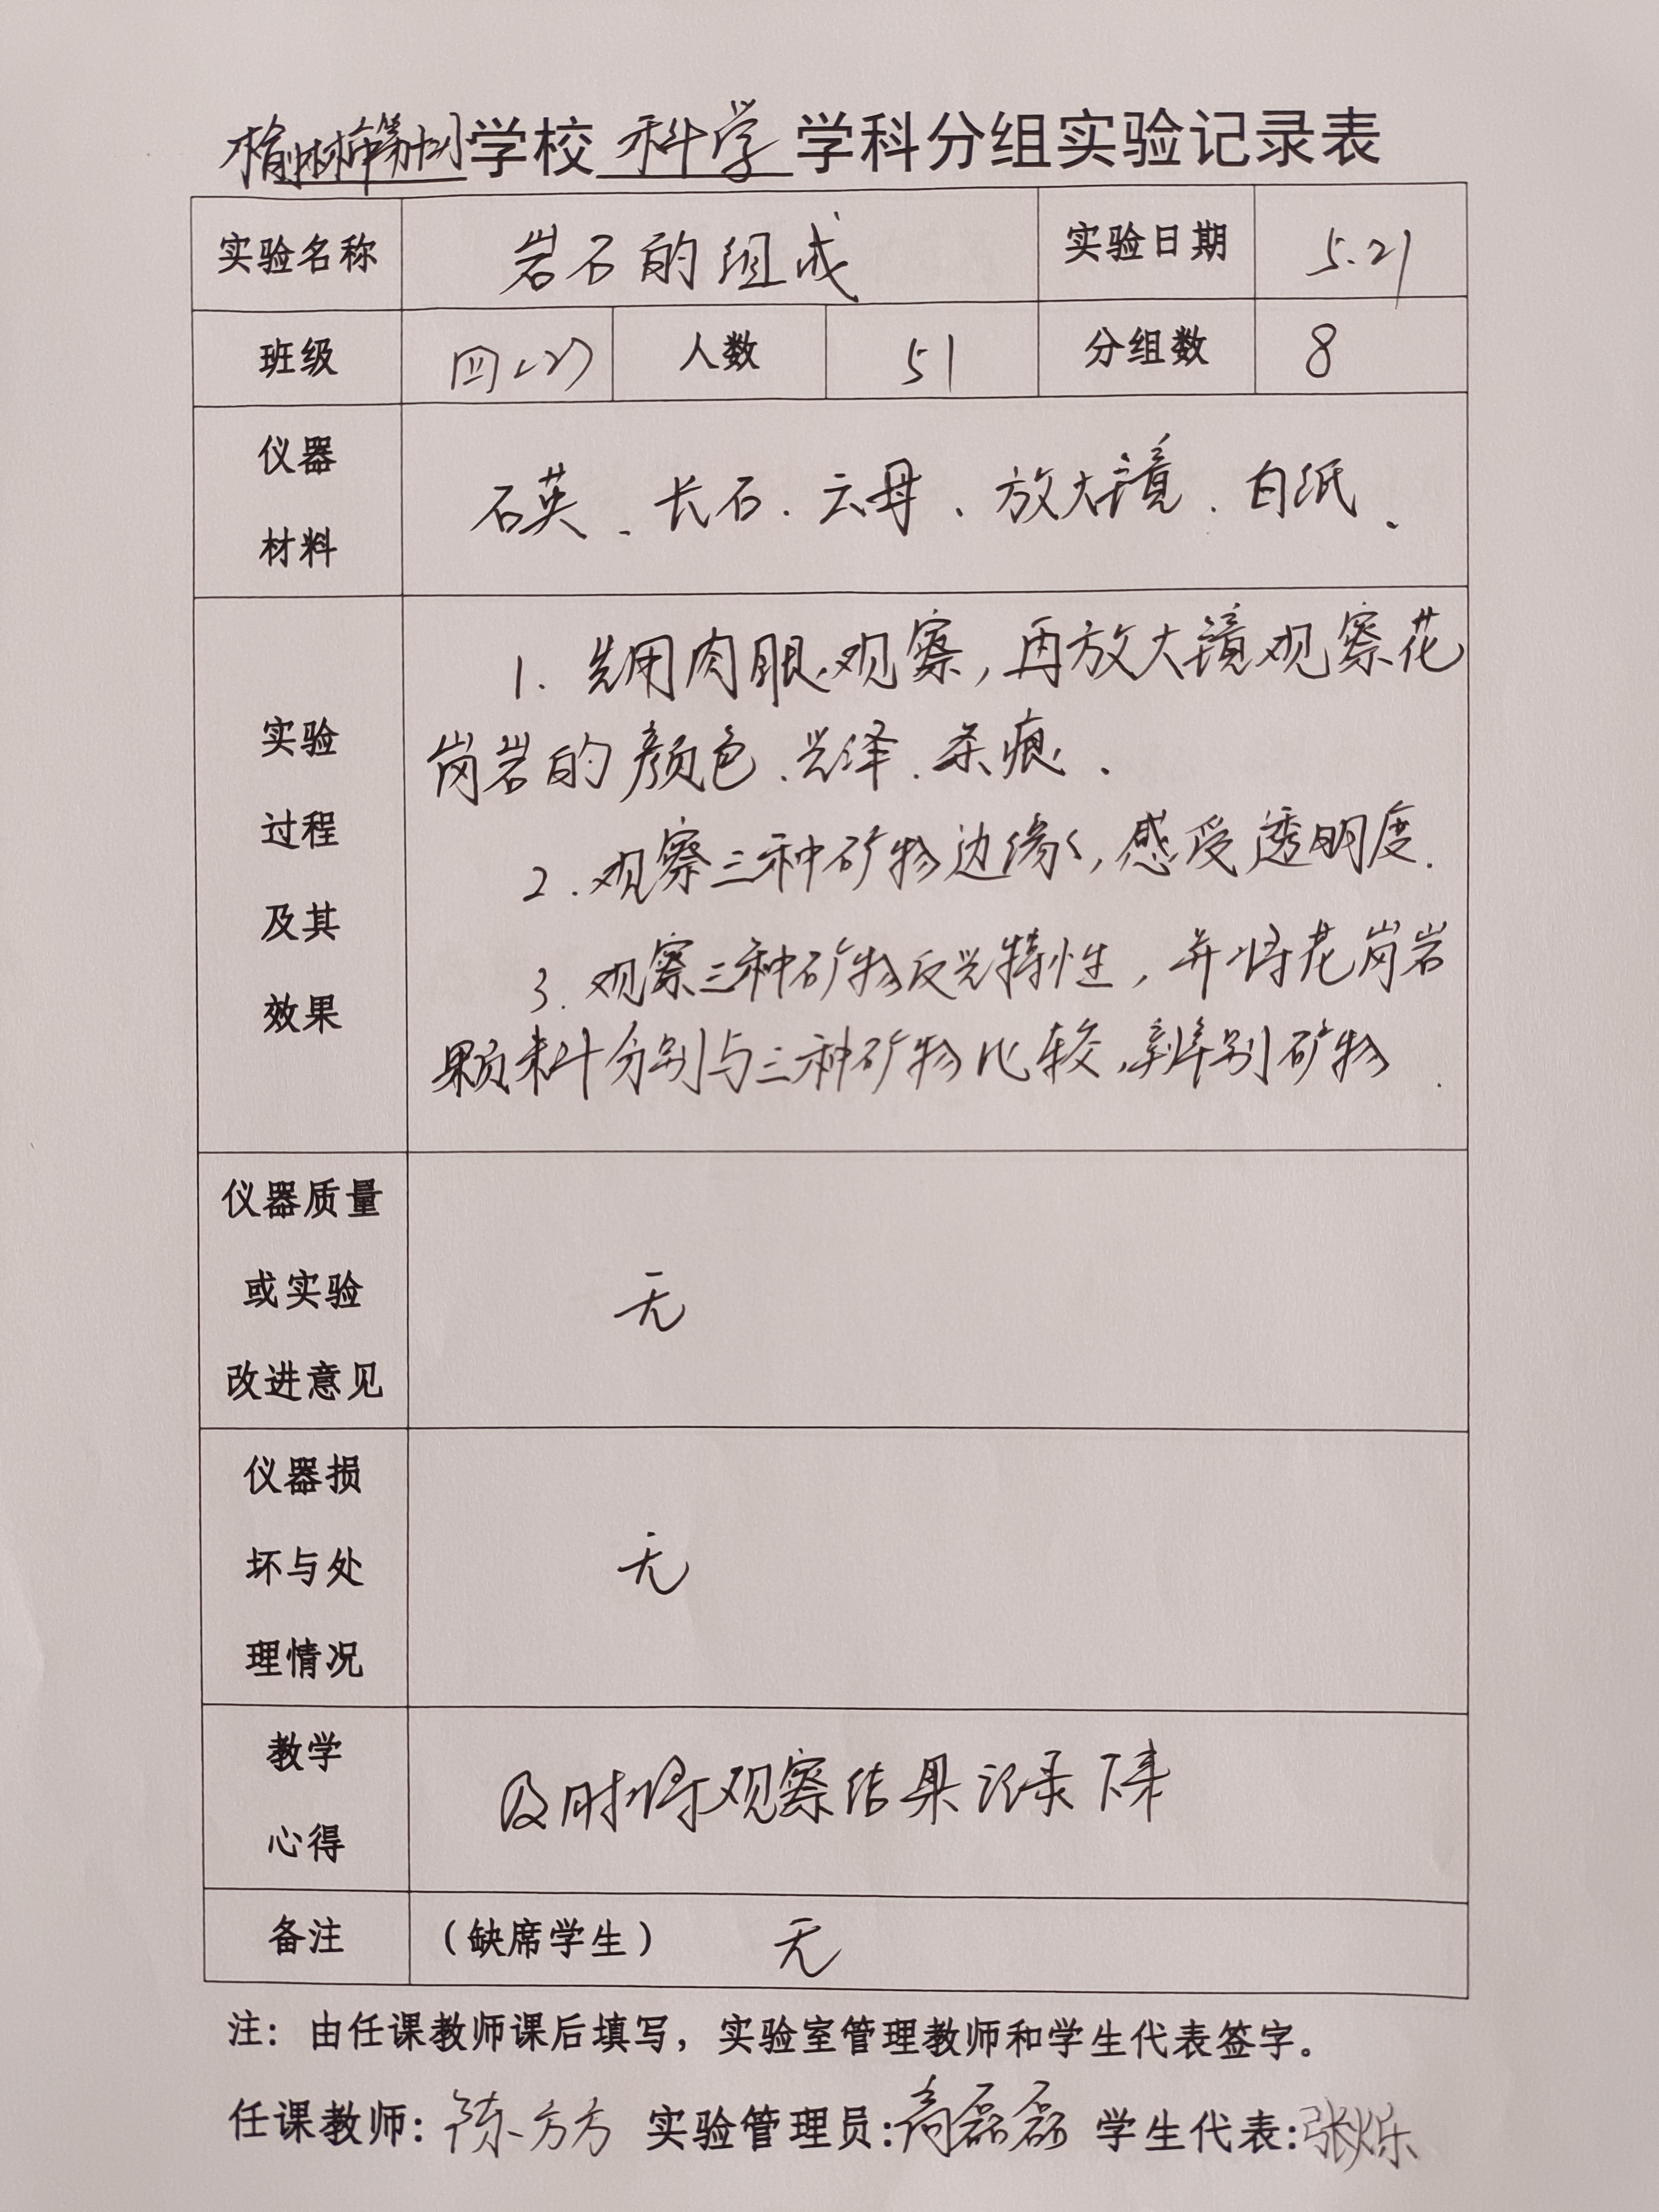 榆林市第十小学校 科学 学科分组实验记录表
实验名称 岩石的组成 实验日期 5.21
班级 四(2) 人数 51 分组数 8
仪器
石英、长石、云母、放大镜、白纸、
材料
1. 先用肉眼观察,再放大镜观察花
岗岩的颜色、光泽、条痕.
实验
过程
及其
效果
2. 观察三种矿物边缘,感受透明度.
3. 观察三种矿物反光特性,并将花岗岩
颗料分别与三种矿物比较,辨别矿物.
仪器质量
或实验
改进意见
无
仪器损
坏与处
理情况
无
教学
心得
及时将观察结果记录下来
备注 (缺席学生) 无
注:由任课教师课后填写,实验室管理教师和学生代表签字。
任课教师:陈方方 实验管理员:高磊磊 学生代表:张烁